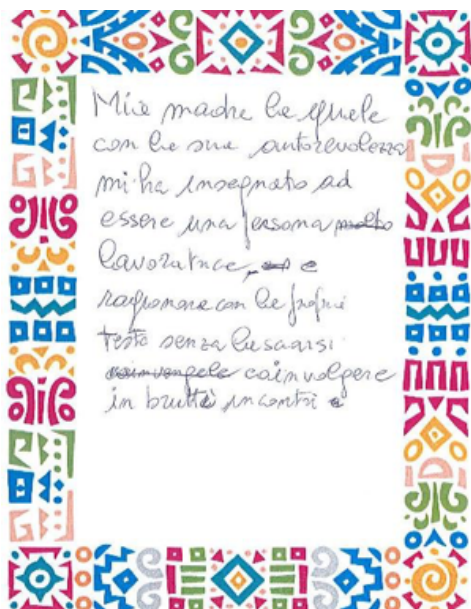 Mia madre la quale
con la sua autorevolezza
mi ha insegnato ad
essere una persona molto
lavoratrice, e
ragionare con la propria
testa senza lasciarsi
coinvolgere
in brutti incontri